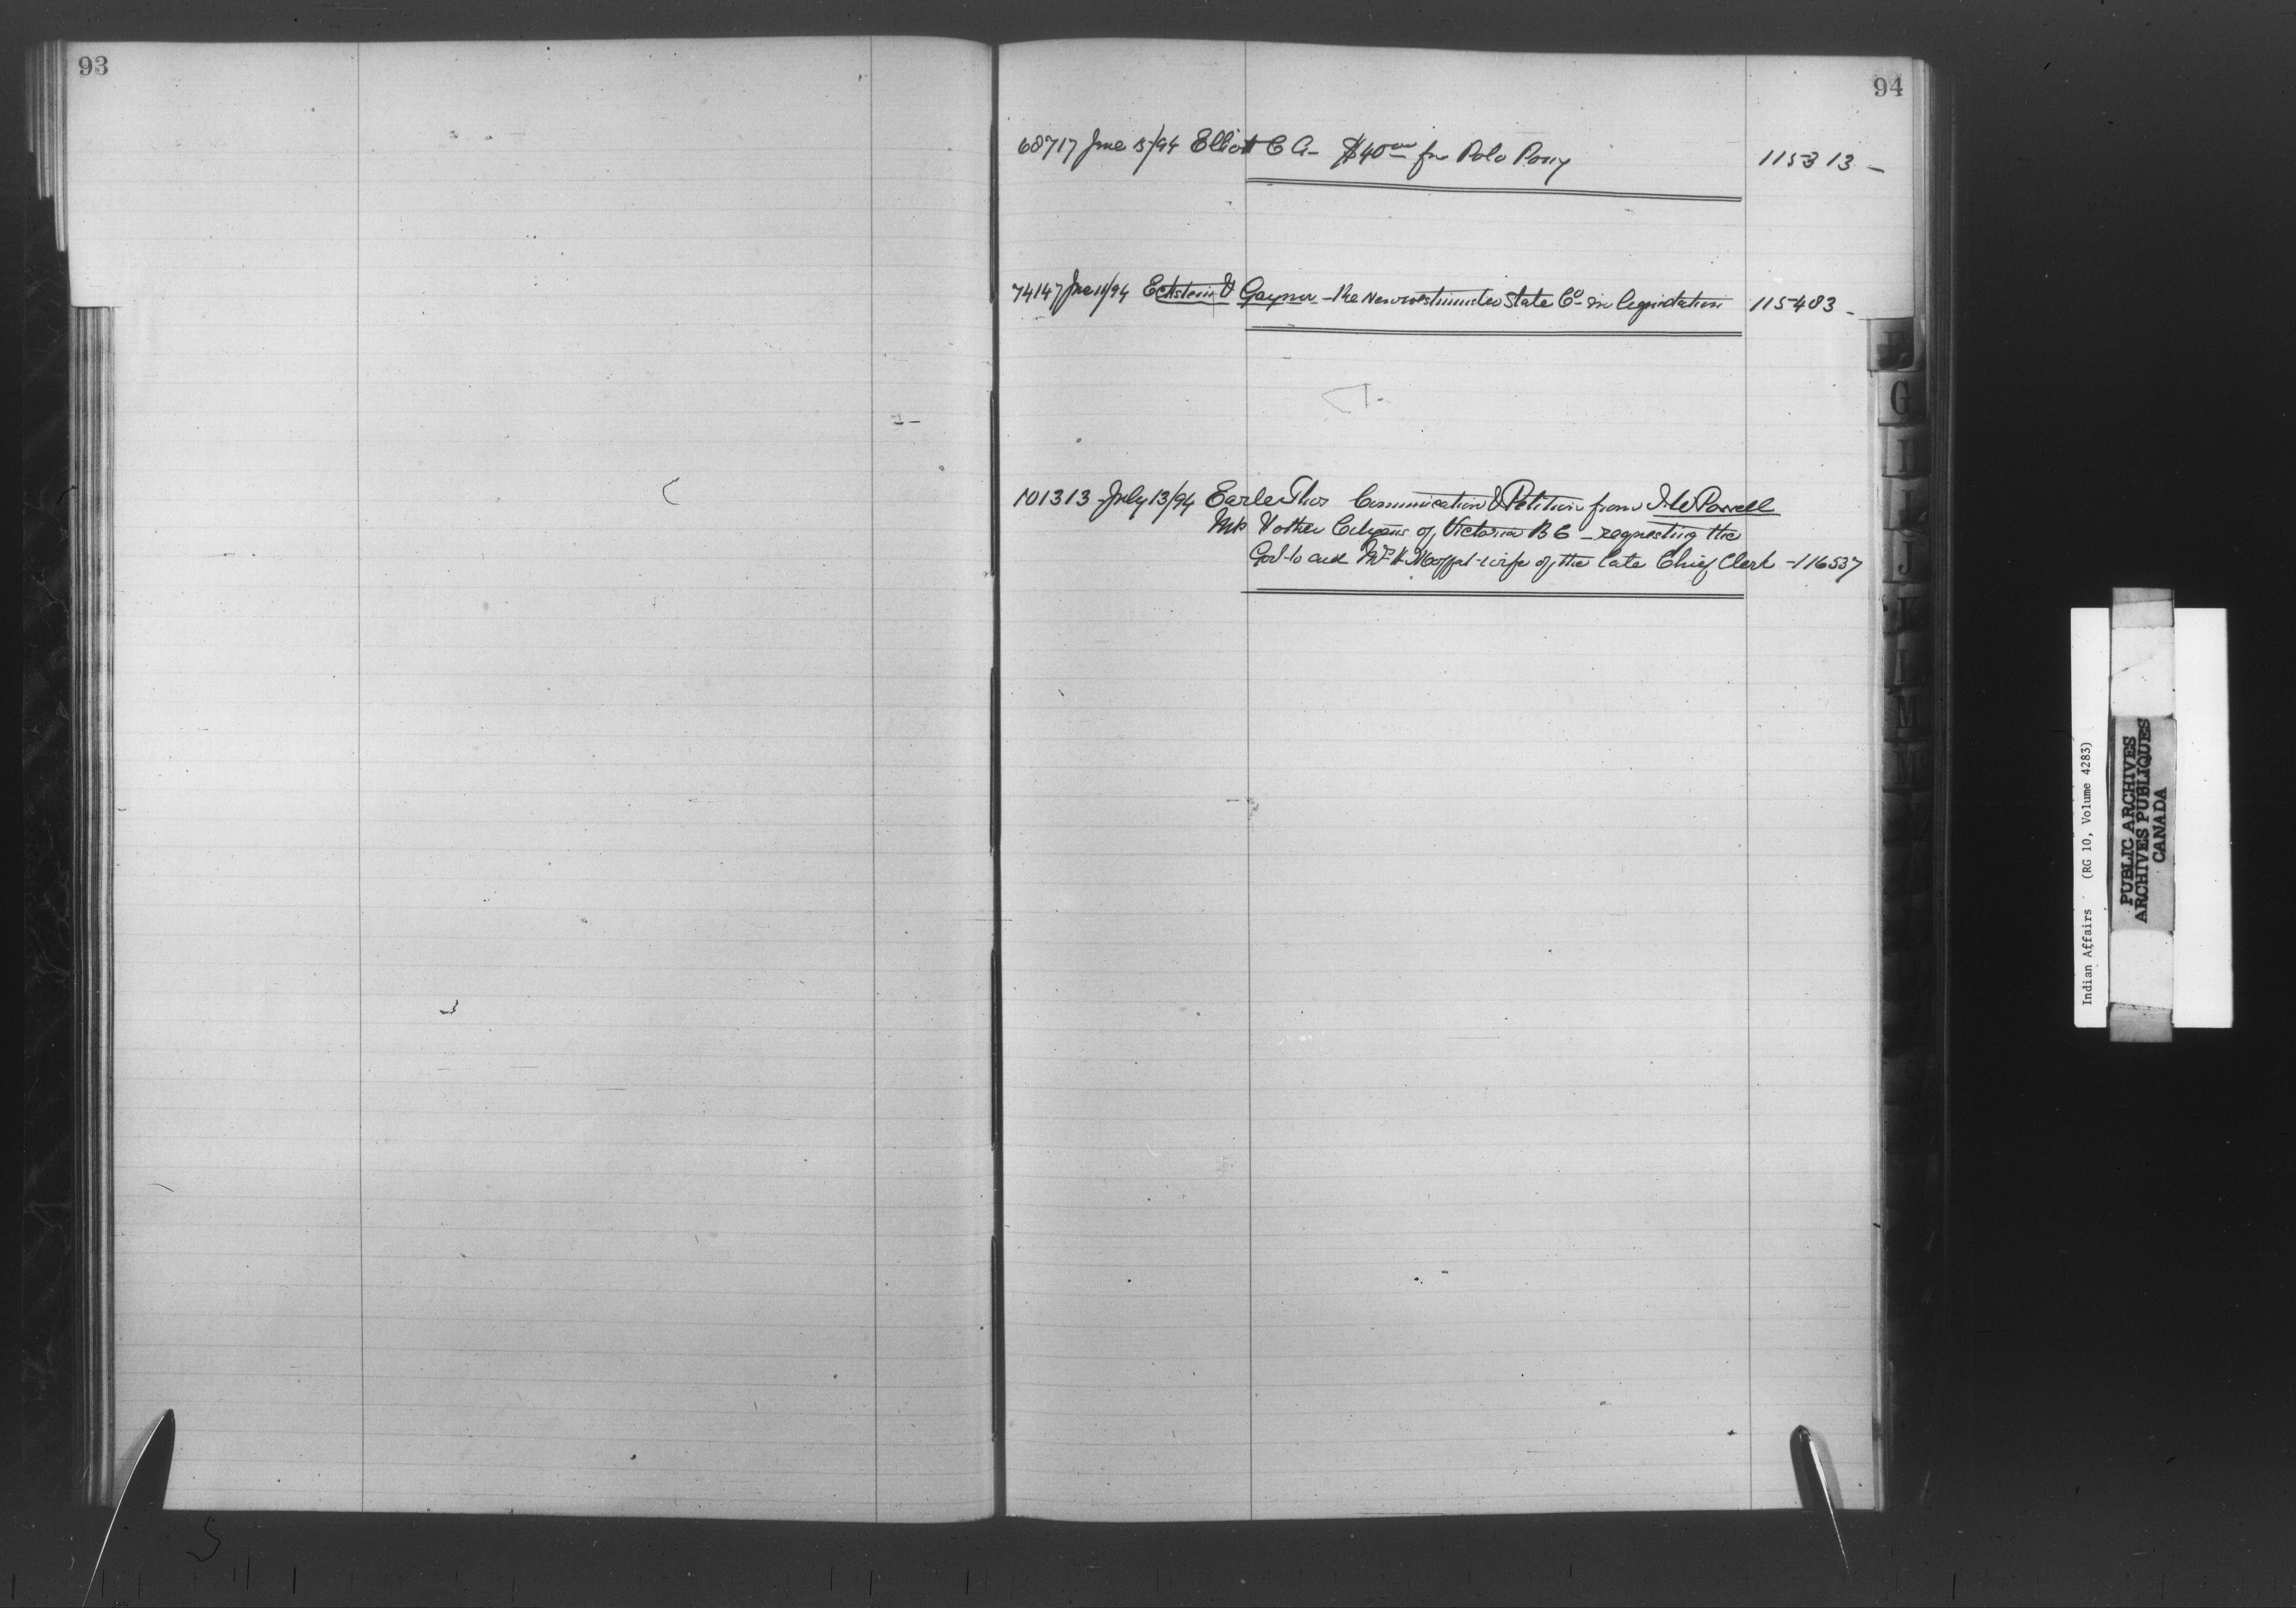 93
94
68717 June 15/94 Elliott C A - $40 00 for Polo Pony 115313 -
74147 June 11/94 Eckstein & Gaynor - Re Newwestminster Slate Co - in liquidation 115483 -
101313 July 13/94 Earle Thos Communication & Petition from I W Powell
MP & other Citizens of Victoria B C - requesting the
Govt to aid Mrs H Moffat - wife of the late Chief Clerk - 116537
G
I
J
L
M
Indian Affairs (RG 10, Volume 4283)
PUBLIC ARCHIVES
ARCHIVES PUBLIQUES
CANADA